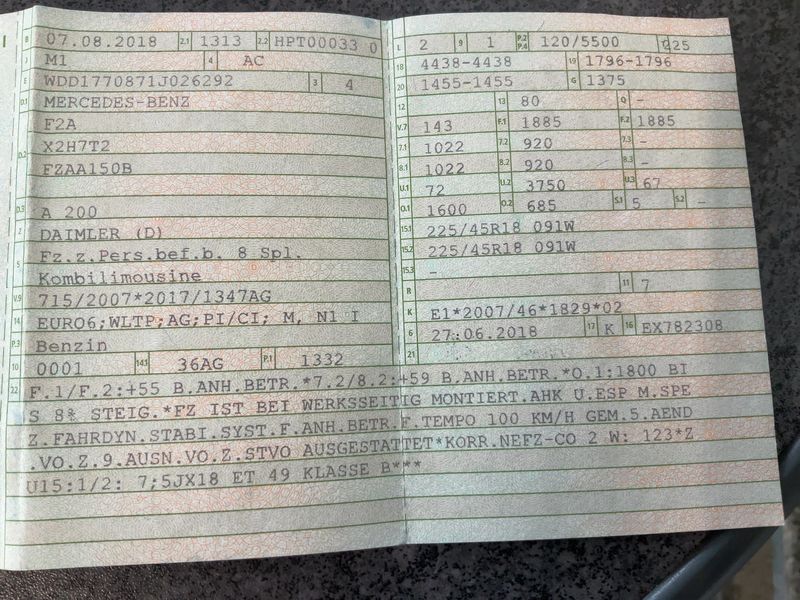 B 07.08.2018 2.1 1313 2.2 HPT00033 0
J M1 4 AC
E WDD1770871J026292 3 4
D.1 MERCEDES-BENZ
F2A
D.2 X2H7T2
FZAA150B
D.3 A 200
2 DAIMLER (D)
5 Fz.z.Pers.bef.b. 8 Spl.
Kombilimousine
V.9 715/2007*2017/1347AG
14 EURO6;WLTP;AG;PI/CI; M, N1 I
P.3 Benzin
10 0001 14.1 36AG P.1 1332
L 2 9 1 P.2 P.4 120/5500 T 225
18 4438-4438 19 1796-1796
20 1455-1455 G 1375
12 13 80 Q -
V.7 143 F.1 1885 F.2 1885
7.1 1022 7.2 920 7.3 -
8.1 1022 8.2 920 8.3 -
U.1 72 U.2 3750 U.3 67
O.1 1600 O.2 685 S.1 5 S.2 -
15.1 225/45R18 091W
15.2 225/45R18 091W
15.3 -
R 11 7
K E1*2007/46*1829*02
6 27.06.2018 17 K 16 EX782308
21
22 F.1/F.2:+55 B.ANH.BETR.*7.2/8.2:+59 B.ANH.BETR.*O.1:1800 BI
S 8% STEIG.*FZ IST BEI WERKSSEITIG MONTIERT.AHK U.ESP M.SPE
Z.FAHRDYN.STABI.SYST.F.ANH.BETR.F.TEMPO 100 KM/H GEM.5.AEND
.VO.Z.9.AUSN.VO.Z.STVO AUSGESTATTET*KORR.NEFZ-CO 2 W: 123*Z
U15:1/2: 7;5JX18 ET 49 KLASSE B***